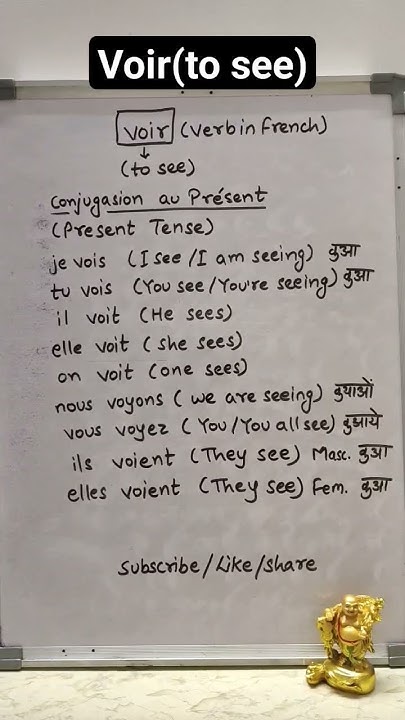 Voir(to see)
voir (verb in French)
↓
(to see)
Conjugasion au Présent
(Present Tense)
je vois (I see/I am seeing) वुआ
tu vois (You see/You're seeing) वुआ
il voit (He sees)
elle voit (she sees)
on voit (one sees)
nous voyons (we are seeing) वुयाओं
vous voyez (You/You all see) वुआये
ils voient (They see) Masc. वुआ
elles voient (They see) Fem. वुआ
subscribe/Like/share